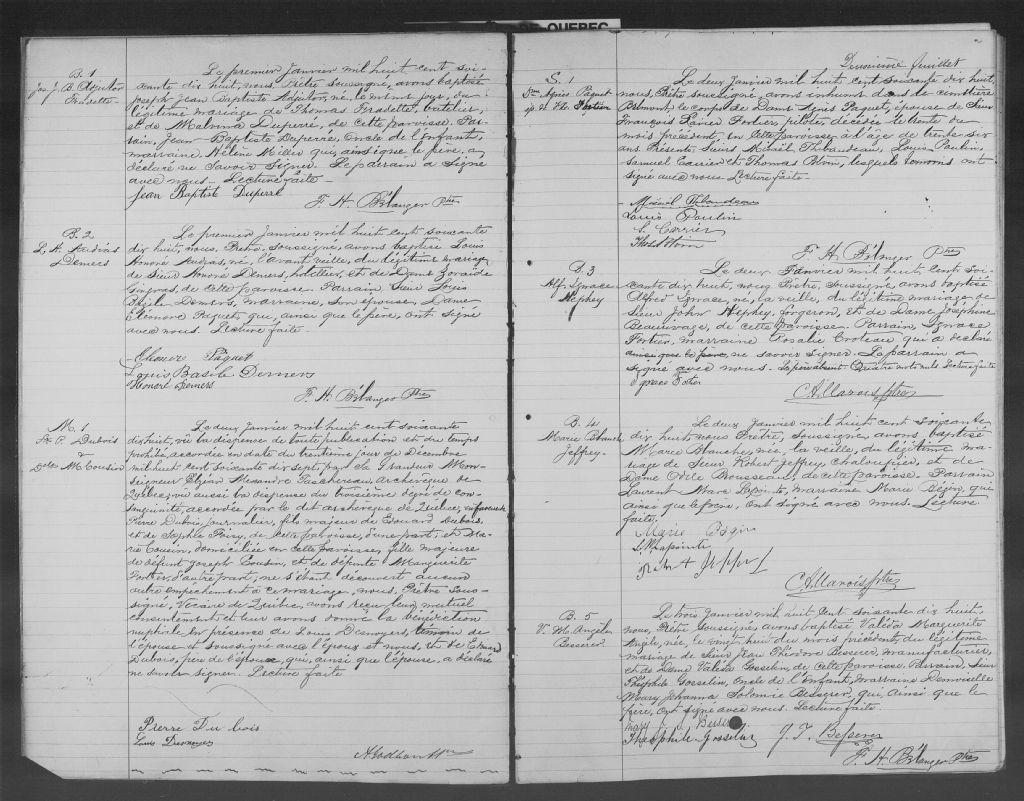 DE QUEBEC
B. 1
Jos. J. B. Adjutor
Frasette
Le premier Janvier mil huit cent soi-
xante dix huit, nous, Prêtre soussigné, avons baptisé
Joseph Jean Baptiste Adjutor, né, le même jour, du
légitime mariage de Thomas Frasette, batelier,
et de Malvina Duperré, de cette paroisse. Par-
rain, Jean Baptiste Duperré, Oncle de l'Enfant,
marraine, Hélène Miller qui, ainsi que le père, a
déclaré ne savoir signer. Le parrain a signé
avec nous. Lecture faite.
Jean Baptist Duperré
F. H. Bélanger Ptre
B. 2
Demers
Le premier Janvier mil huit cent soixante
dix huit, nous, Prêtre, soussigné, avons baptisé Louis
Honoré né, l'avant veille, du légitime mariage
de Sieur Honoré Demers, hôtelier, et de Dame Zoraïde
Gingras, de cette paroisse. Parrain, Sieur Louis
Bazile Demers, marraine, son épouse, Dame
Eléonore Paquet, qui, ainsi que le père, ont signé
avec nous. Lecture faite.
Eleonore Paquet
Louis Basile Demers
Honoré Demers
F. H. Bélanger Ptre
M. 1
P. Dubois
&
Dlle M. Cousin
Le deux Janvier mil huit cent soixante
dix huit, vu la dispense de toute publication et du temps
prohibé, accordée en date du trentième jour de Décembre
mil huit cent soixante dix sept, par Sa Grandeur Mon-
seigneur Elzéar Alexandre Taschereau, archevêque de
Québec, vu aussi la dispense du troisième degré de con-
sanguinité, accordée par le dit archevêque de Québec, en faveur de
Pierre Dubois, journalier, fils majeur de Edouard Dubois,
et de Sophie Poiré, de cette paroisse, d'une part; et Ma-
rie Cousin, domiciliée en cette paroisse, fille majeure
de défunt Joseph Cousin, et de défunte Marguerite
Fortier, d'autre part; ne s'étant découvert aucun
autre empêchement à ce mariage, nous, Prêtre Sous-
signé, Vicaire de Québec, avons reçu leur mutuel
consentement et leur avons donné la bénédiction
nuptiale en présence de Louis Desnoyers, témoin de
l'épouse et soussigné avec l'époux et nous, et de
Dubois, père de l'époux, qui, ainsi que l'épouse, a déclaré
ne savoir signer. Lecture faite
Pierre Du bois
Louis Desnoyers
Deuxième feuillet
S. 1
Dme Agnès Paquet
ép. d. Fortier
Le deux Janvier mil huit cent soixante dix huit,
nous, Prêtre soussigné, avons inhumé, dans le cimetière
Belmont, le corps de Dame Agnès Paquet, épouse de Sieur
François Xavier Fortier, pilote, décédée le trente du
mois précédent, en cette paroisse à l'âge de trente six
ans. Présents, Sieurs Misaël Thibaudeau, Louis Paulin,
Samuel Carrier et Thomas Blorn, lesquels témoins ont
signé avec nous. Lecture faite.
Misaël Thibaudeau
Louis Paulin
S. Carrier
F. H. Bélanger Ptre
B. 3
Alf. Ignace
Hephey
Le deux Janvier mil huit cent soi-
xante dix huit, nous Prêtre, soussigné, avons baptisé
Alfred Ignace, né, la veille, du légitime mariage de
Sieur John Hephey, forgeron, et de Dame Joséphine
Beauvage, de cette paroisse. Parrain, Ignace
Fortier, marraine Rosalie Croteau qui a déclaré
ainsi que le père, ne savoir signer. Le parrain a
signé avec nous. Quatre mots nuls Lecture faite
Ignace Fortier
C. A. Marois ptre
B. 4
Marie Blanche
Jeffrey
Le deux Janvier mil huit cent soixante
dix huit nous Prêtre, soussigné, avons baptisé
Marie Blanche, née, la veille, du légitime ma-
riage de Sieur Robert Jeffrey, chaloupier, et de
Dame Odile Brousseau, de cette paroisse. Parrain
Laurent Marc Lapointe, marraine Marie Bégin, qui
ainsi que le père, ont signé avec nous. Lecture
faite.
Marie Begin
L. M. Lapointe
C. A. Marois ptre
B. 5
V. M. Angèle
Besserer
Le trois Janvier mil huit cent soixante dix huit,
nous, Prêtre Soussigné, avons baptisé Valéda Marguerite
Angèle, née, le vingt huit du mois précédent, du légitime
mariage de Sieur Jean Théodore Besserer, manufacturier,
et de Dame Valéda Gosselin, de cette paroisse. Parrain, Sieur
Théophile Gosselin, Oncle de l'Enfant, marraine Demoiselle
Mary Johanna Salomé Besserer, qui, ainsi que le
père, ont signé avec nous. Lecture faite.
Mary J. J.
Théophile Gosselin
J. T. Besserer
F. H. Bélanger Ptre